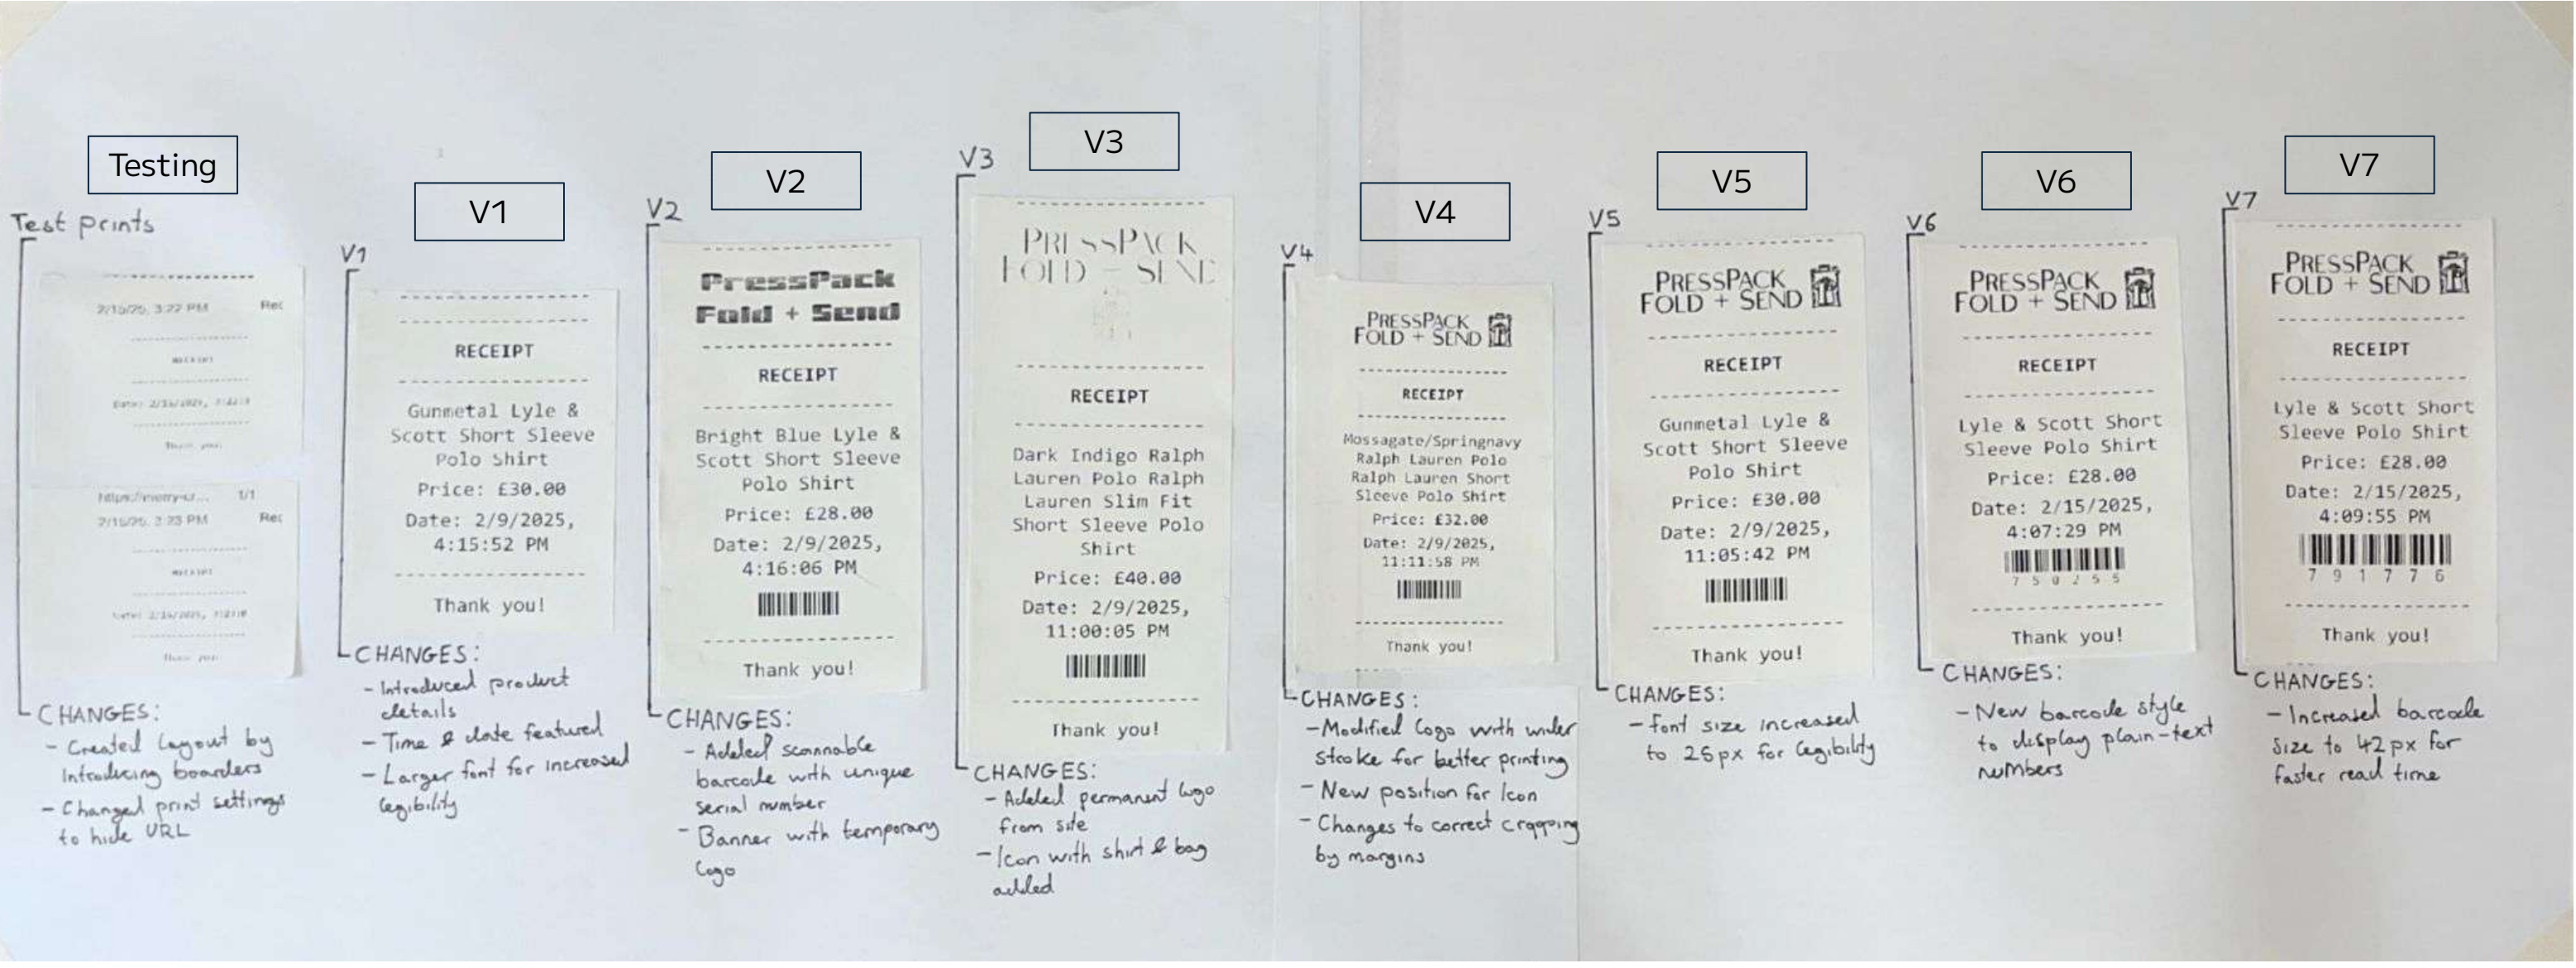 Testing
Test prints
2/15/25, 3:22 PM Rec
RECEIPT
Thank you!
1/1
2/15/25, 3:23 PM Rec
RECEIPT
Thank you!
CHANGES:
- Created layout by
introducing boarders
- Changed print settings
to hide URL
V1
V1
RECEIPT
Gunmetal Lyle &
Scott Short Sleeve
Polo Shirt
Price: £30.00
Date: 2/9/2025,
4:15:52 PM
Thank you!
CHANGES:
- Introduced product
details
- Time & date featured
- Larger font for increased
legibility
V2
V2
PressPack
Fold + Send
RECEIPT
Bright Blue Lyle &
Scott Short Sleeve
Polo Shirt
Price: £28.00
Date: 2/9/2025,
4:16:06 PM
Thank you!
CHANGES:
- Added scannable
barcode with unique
serial number
- Banner with temporary
logo
V3
V3
PRESSPACK
FOLD + SEND
RECEIPT
Dark Indigo Ralph
Lauren Polo Ralph
Lauren Slim Fit
Short Sleeve Polo
Shirt
Price: £40.00
Date: 2/9/2025,
11:00:05 PM
Thank you!
CHANGES:
- Added permanent logo
from site
- Icon with shirt & bag
added
V4
V4
PRESSPACK
FOLD + SEND
RECEIPT
Mossagate/Springnavy
Ralph Lauren Polo
Ralph Lauren Short
Sleeve Polo Shirt
Price: £32.00
Date: 2/9/2025,
11:11:58 PM
Thank you!
CHANGES:
- Modified logo with wider
stroke for better printing
- New position for Icon
- Changes to correct cropping
by margins
V5
V5
PRESSPACK
FOLD + SEND
RECEIPT
Gunmetal Lyle &
Scott Short Sleeve
Polo Shirt
Price: £30.00
Date: 2/9/2025,
11:05:42 PM
Thank you!
CHANGES:
- font size increased
to 25px for legibility
V6
V6
PRESSPACK
FOLD + SEND
RECEIPT
Lyle & Scott Short
Sleeve Polo Shirt
Price: £28.00
Date: 2/15/2025,
4:07:29 PM
7 5 0 2 5 5
Thank you!
CHANGES:
- New barcode style
to display plain-text
numbers
V7
V7
PRESSPACK
FOLD + SEND
RECEIPT
Lyle & Scott Short
Sleeve Polo Shirt
Price: £28.00
Date: 2/15/2025,
4:09:55 PM
7 9 1 7 7 6
Thank you!
CHANGES:
- Increased barcode
size to 42px for
faster read time